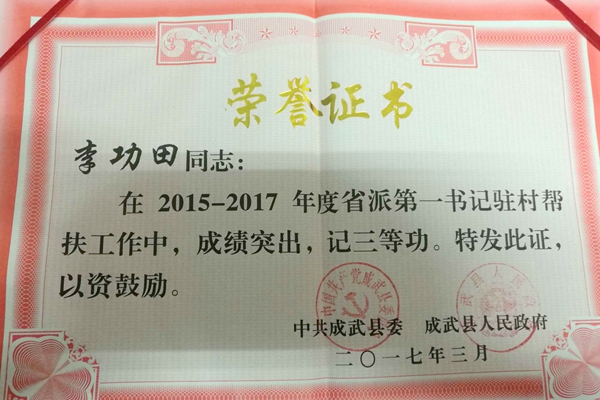 荣誉证书
李功田同志：
在 2015-2017 年度省派第一书记驻村帮
扶工作中，成绩突出，记三等功。特发此证，
以资鼓励。
中国共产党成武县委员会
武县人民政
中共成武县委 成武县人民政府
二〇一七年三月